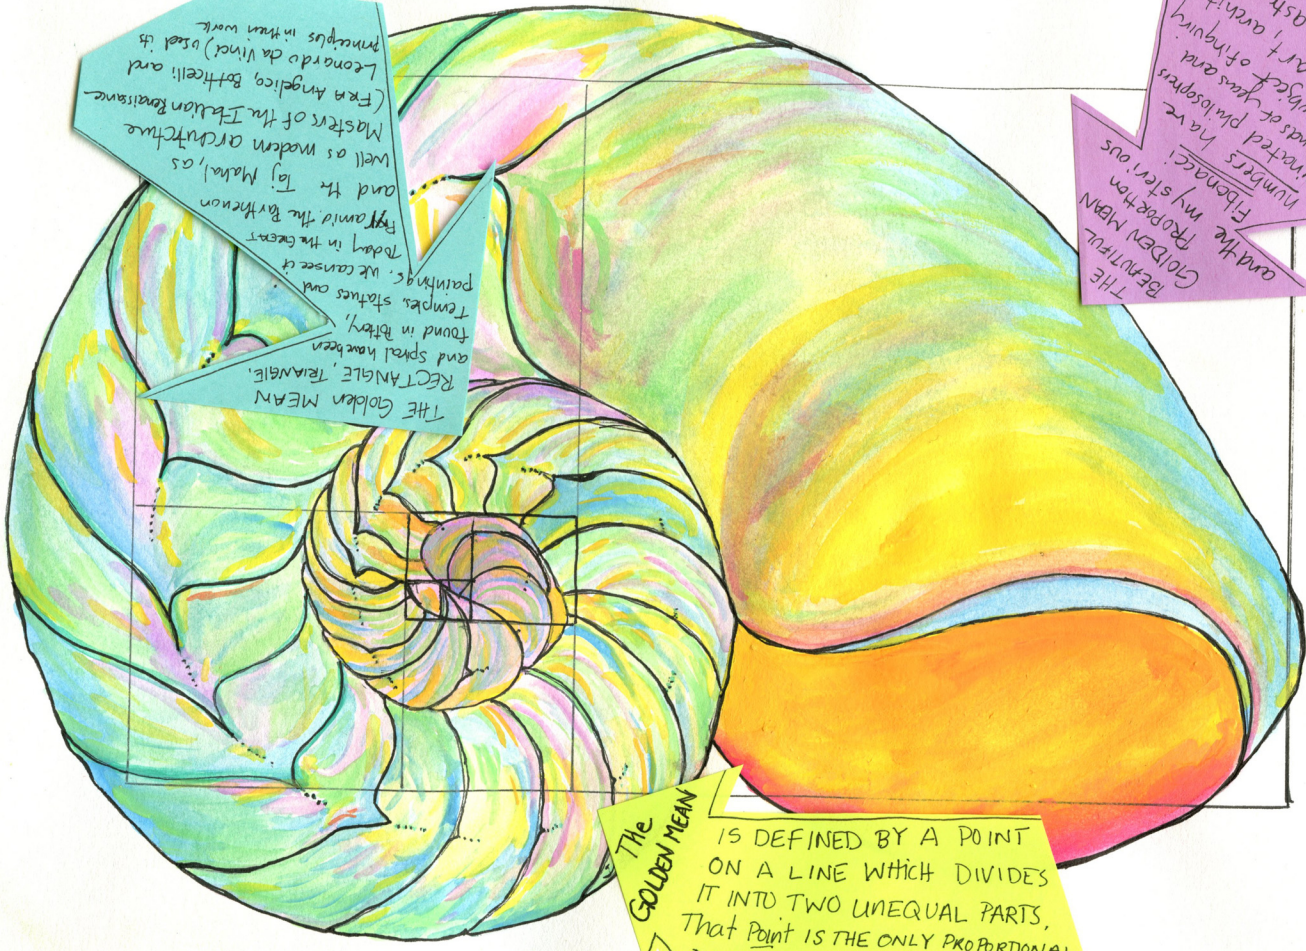 THE Golden MEAN
RECTANGLE, TRIANGLE,
and Spiral have been
found in Pottery,
Temples, statues and
paintings. We can see it
Today in the GREAT
Pyramid, the Parthenon
and the Taj Mahal, as
well as modern architecture
Masters of the Italian Renaissance
(FRA Angelico, Botticelli and
Leonardo da Vinci) used its
principles in their work
THE
BEAUTIFUL
GOLDEN MEAN
PROPORTION
and the mysterious
Fibonacci
numbers have
philosophers
of years and
of inquiry
art,
The
GOLDEN MEAN
IS DEFINED BY A POINT
ON A LINE WHICH DIVIDES
IT INTO TWO UNEQUAL PARTS,
That Point IS THE ONLY PROPORTIONAL